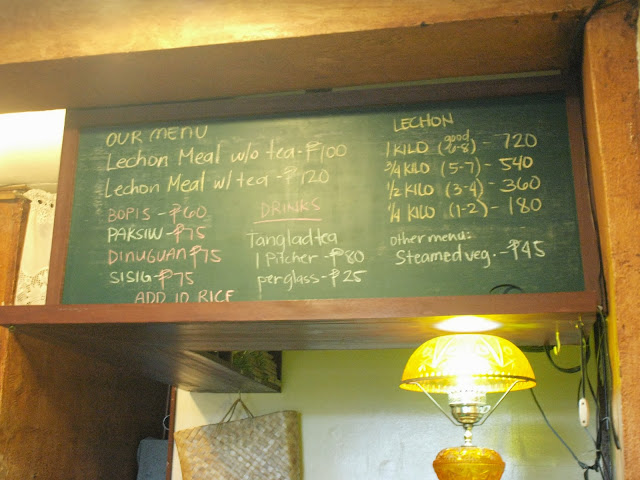 OUR MENU
Lechon Meal w/o tea - ₱100
Lechon Meal w/ tea - ₱120
BOPIS - ₱60
PAKSIW - ₱75
DINUGUAN ₱75
SISIG - ₱75
ADD 10 RICE
DRINKS
Tanglad tea
1 Pitcher - ₱80
per glass - ₱25
LECHON
good
1 KILO (6-8) - 720
3/4 KILO (5-7) - 540
1/2 KILO (3-4) - 360
1/4 KILO (1-2) - 180
other menu:
Steamed veg. - ₱45